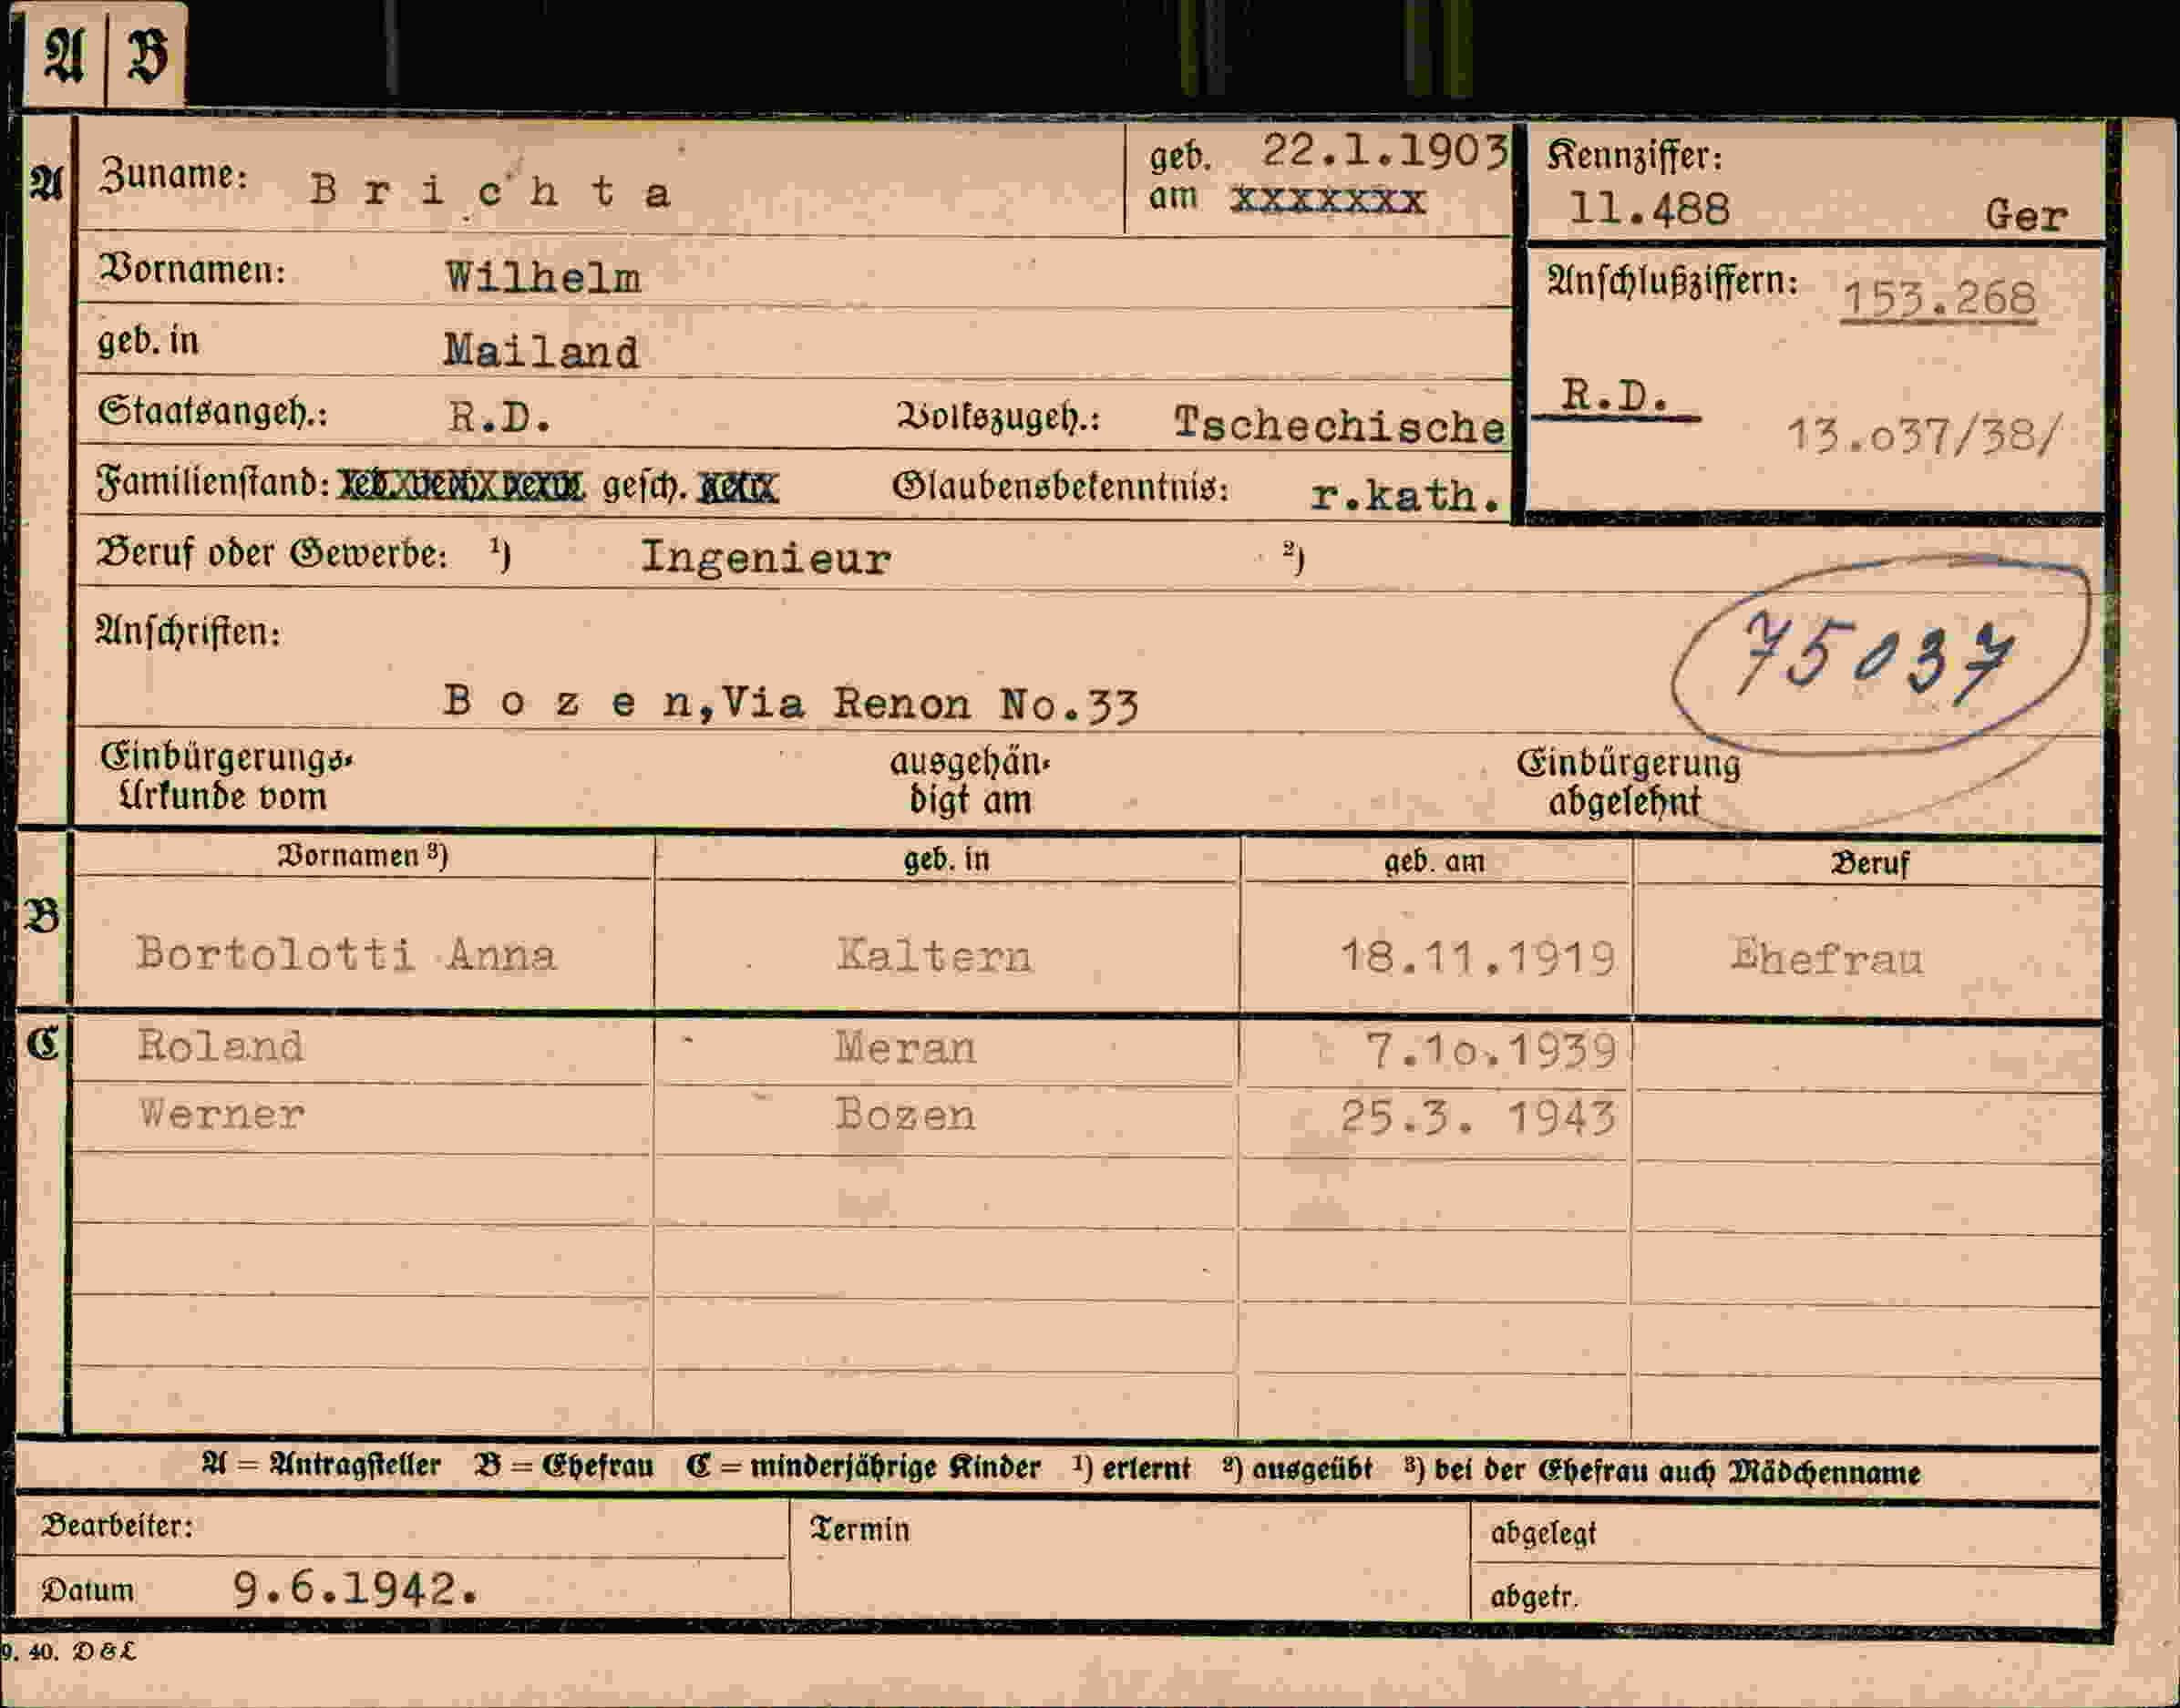 A B
A Zuname: Brichta geb. am 22.1.1903 xxxxxxx Kennziffer: 11.488 Ger
Vornamen: Wilhelm Anschlußziffern: 153.268
geb. in Mailand
Staatsangeh.: R.D. Volkszugeh.: Tschechische R.D. 13.037/38/
Familienstand: gesch. Glaubensbekenntnis: r.kath.
Beruf oder Gewerbe: 1) Ingenieur 2)
Anschriften: 75037
Bozen, Via Renon No.33
Einbürgerungs- ausgehän- Einbürgerung
Urkunde vom digt am abgelehnt
Vornamen 3) geb. in geb. am Beruf
B Bortolotti Anna Kaltern 18.11.1919 Ehefrau
C Roland Meran 7.10.1939
Werner Bozen 25.3. 1943
A = Antragsteller B = Ehefrau C = minderjährige Kinder 1) erlernt 2) ausgeübt 3) bei der Ehefrau auch Mädchenname
Bearbeiter: Termin abgelegt
Datum 9.6.1942. abgetr.
9. 40. D & L